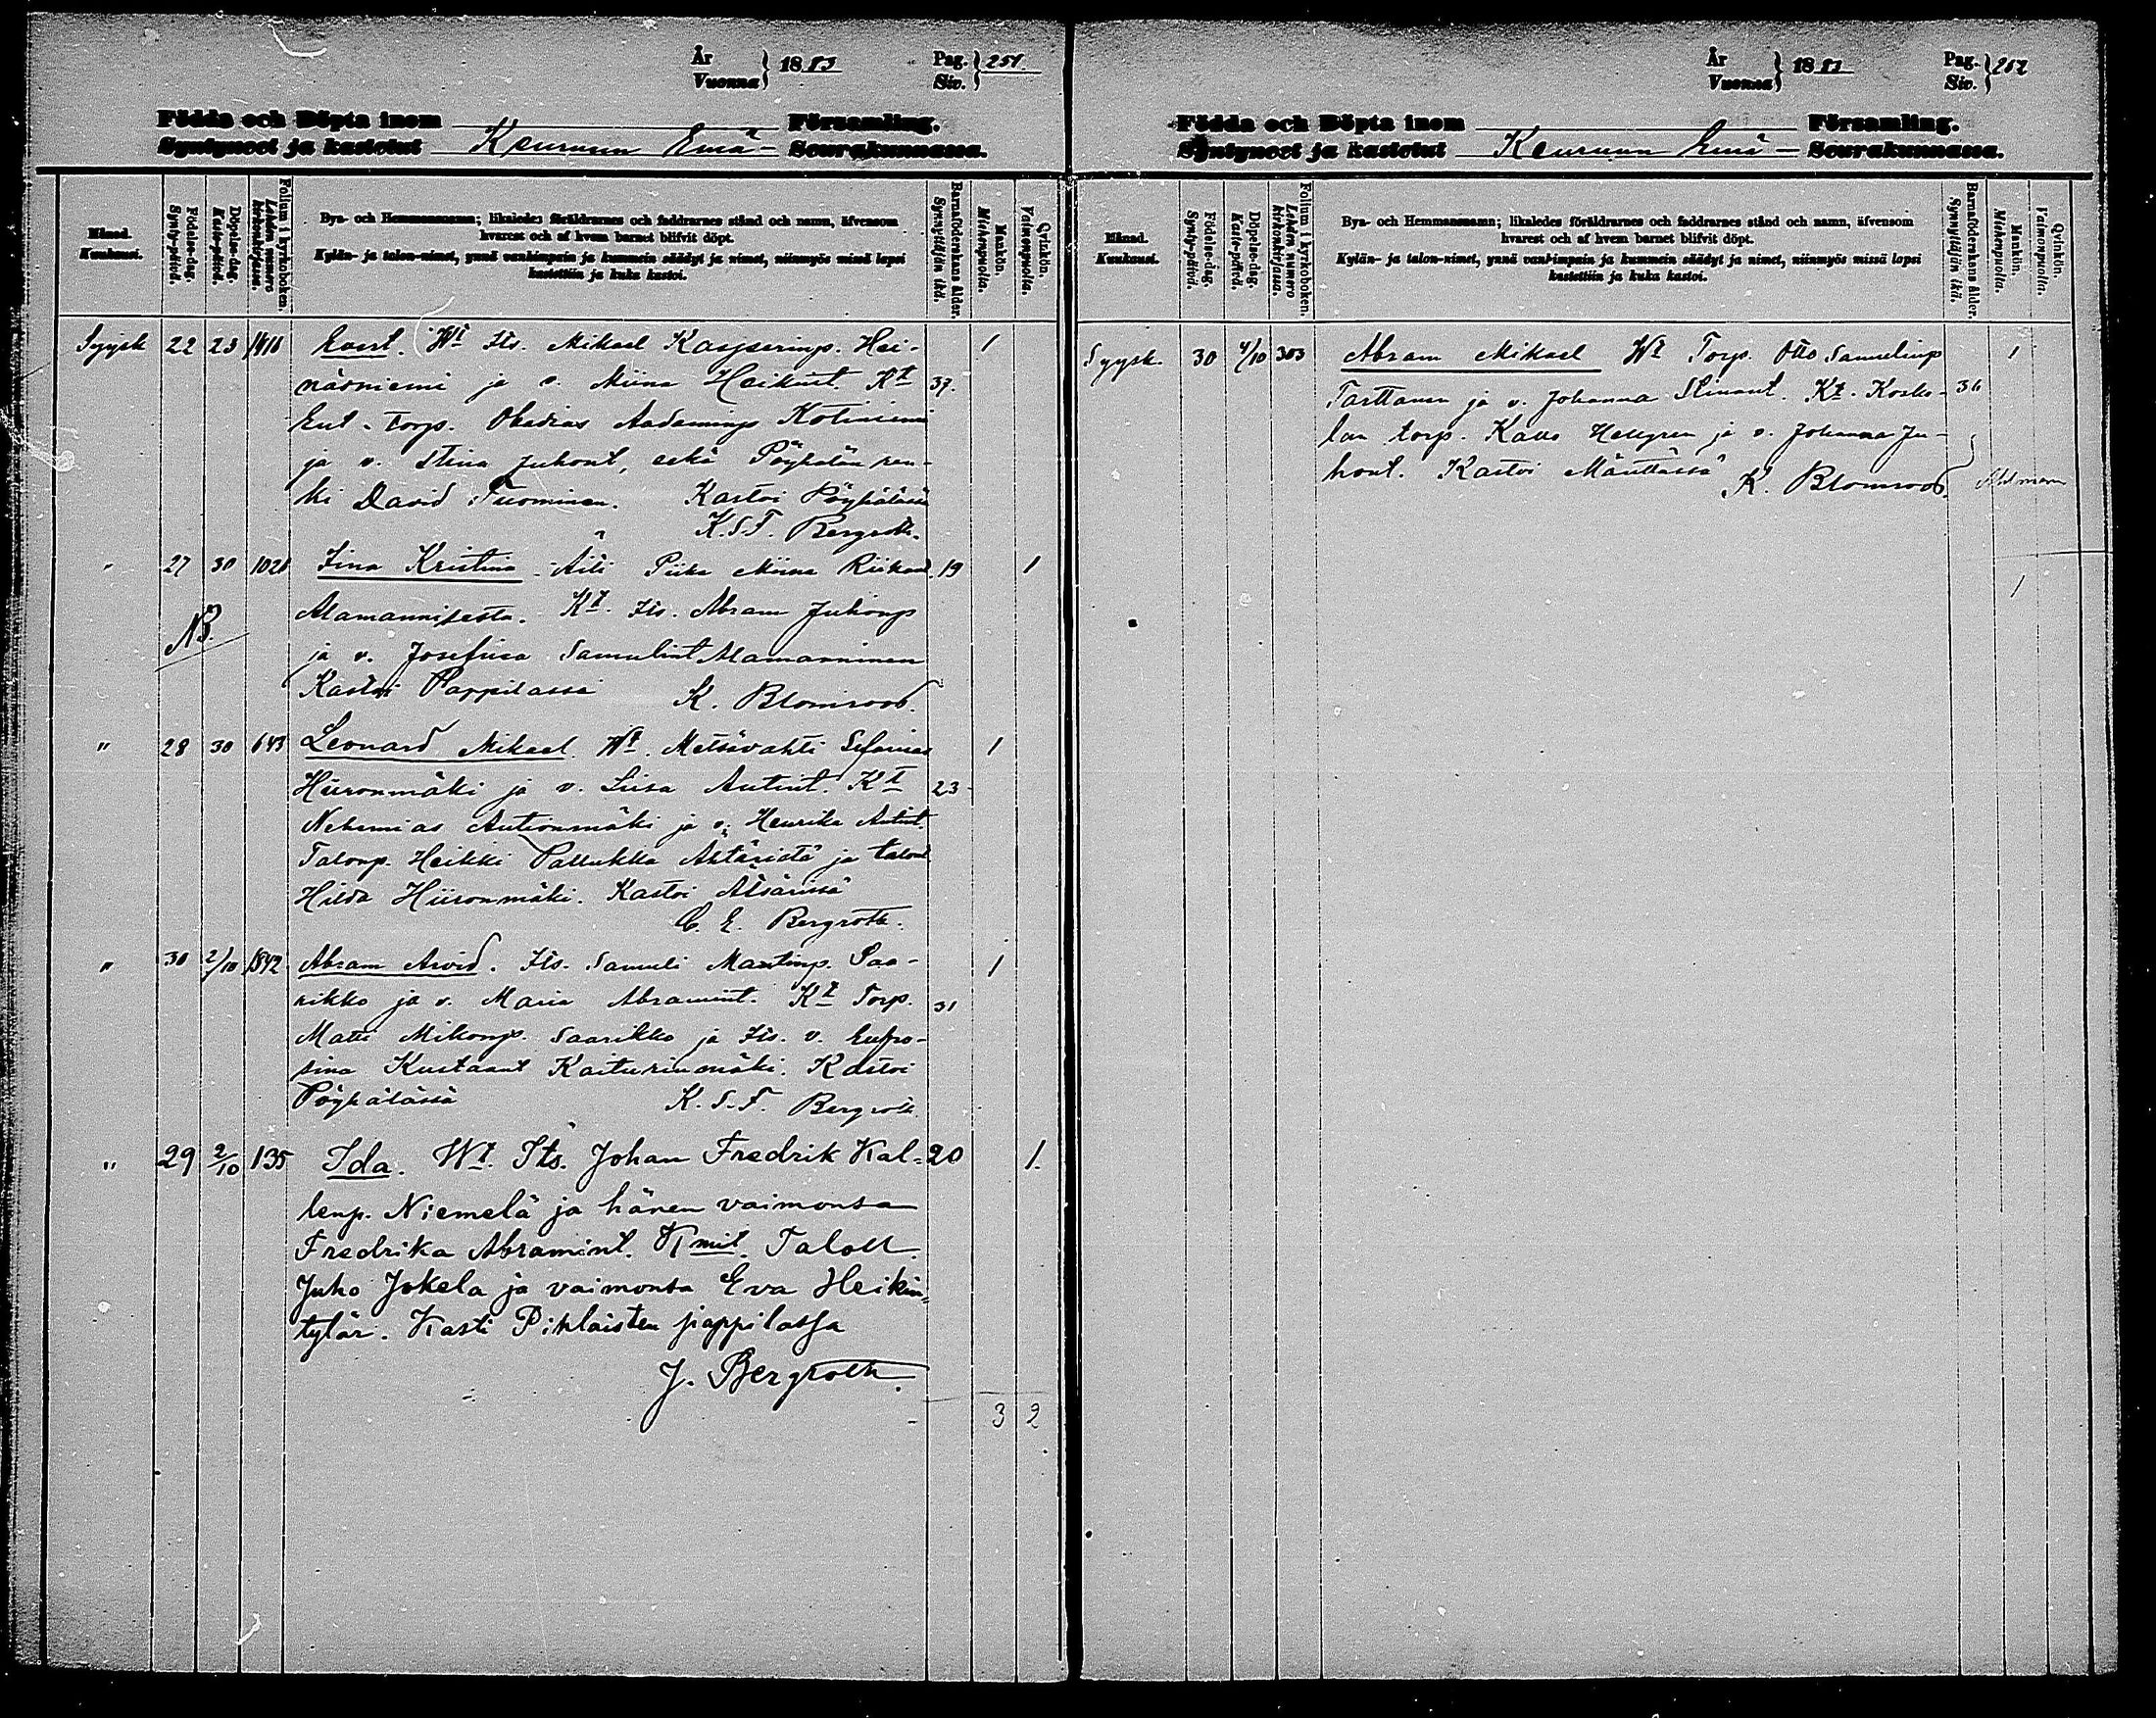 År
Vuonna } 1883 Pag.
Siv. } 251
Födda och Döpta inom Församling.
Syntyneet ja kastetut Keuruun Emä- Seurakunnassa.
Månad.
Kuukausi.
Födelse-dag.
Synty-päivä.
Döpelse-dag.
Kaste-päivä.
Folium i kyrkoboken.
Lehden numero kirkonkirjassa.
Bya- och Hemmansnamn; likaledes föräldrarnes och faddrarnes stånd och namn, äfvensom
hvarest och af hvem barnet blifvit döpt.
Kylän- ja talon-nimet, ynnä vanhimpain ja kummein säädyt ja nimet, niinmyös missä lapsi
kastettiin ja kuka kastoi.
Barnaföderskans ålder.
Synnyttäjän ikä.
Mankön.
Miehenpuolia.
Qvinkön.
Vaimonpuolia.
Syysk 22 23 Evert. Wt Its. Mikael Kasperinp. Hei- 1
näoniemi ja v. Miina Heikint. Kt 37.
Ent. Torp. Obadias Aadaminp Kotiniemi
ja v. Stina Juhont, sekä Pöyhölän ren-
ki David Tuominen. Kastoi Pöyhölässä
K.S.F. Bergroth.
" 27 30 1021 Fina Kristina. Äiti Piika Miina 19 1
Alamannisesta. Kt. Its. Abram Juhonp
NB.
ja v. Josefina Samulint Alamanninen
Kastoi Pappilassa K. Blomroos.
" 28 30 643 Leonard Mikael Wt. Metsävahti Sefanias 1
Hiironmäki ja v. Liisa Antint. Kt 23
Nehemias Autionmäki ja v. Henrika Antint.
Talonp. Heikki Pallukka Ähtäristä ja talont
Hilda Hiironmäki. Kastoi Ätsärissä
C. E. Bergroth.
" 30 2/10 1842 Abram Arvid. Its. Samuli Mattinp. Saa- 1
rikko ja v. Maria Abramint. Kt Torp. 31
Matti Mikonp. Saarikko ja Its. v. Eufro-
sina Kustaant Kaiturinmäki. Kastoi
Pöyhölässä K.S.F. Bergroth
" 29 2/10 135 Ida. Wt. Its. Johan Fredrik Kal- 20 1.
lenp. Niemelä ja hänen vaimonsa
Fredrika Abramint. Kmit. Taloll.
Juho Jokela ja vaimonsa Eva Heikin-
tytär. Kasti Pihlaisten pappilassa
J. Bergroth.
3 2
År
Vuonna } 1883 Pag.
Siv. } 252
Födda och Döpta inom Församling.
Syntyneet ja kastetut Keuruun Emä- Seurakunnassa.
Månad.
Kuukausi.
Födelse-dag.
Synty-päivä.
Döpelse-dag.
Kaste-päivä.
Folium i kyrkoboken.
Lehden numero kirkonkirjassa.
Bya- och Hemmansnamn; likaledes föräldrarnes och faddrarnes stånd och namn, äfvensom
hvarest och af hvem barnet blifvit döpt.
Kylän- ja talon-nimet, ynnä vanhimpain ja kummein säädyt ja nimet, niinmyös missä lapsi
kastettiin ja kuka kastoi.
Barnaföderskans ålder.
Synnyttäjän ikä.
Mankön.
Miehenpuolia.
Qvinkön.
Vaimonpuolia.
Syysk. 30 4/10 303 Abram Mikael Wt Torp. Otto Samulinp 1
Tarttanen ja v. Johanna Stinant. Kt. Koske- 36
lan torp. Kalle Hellgren ja v. Johanna Ju-
hont. Kastoi Mänttässä K. Blomroos.
1